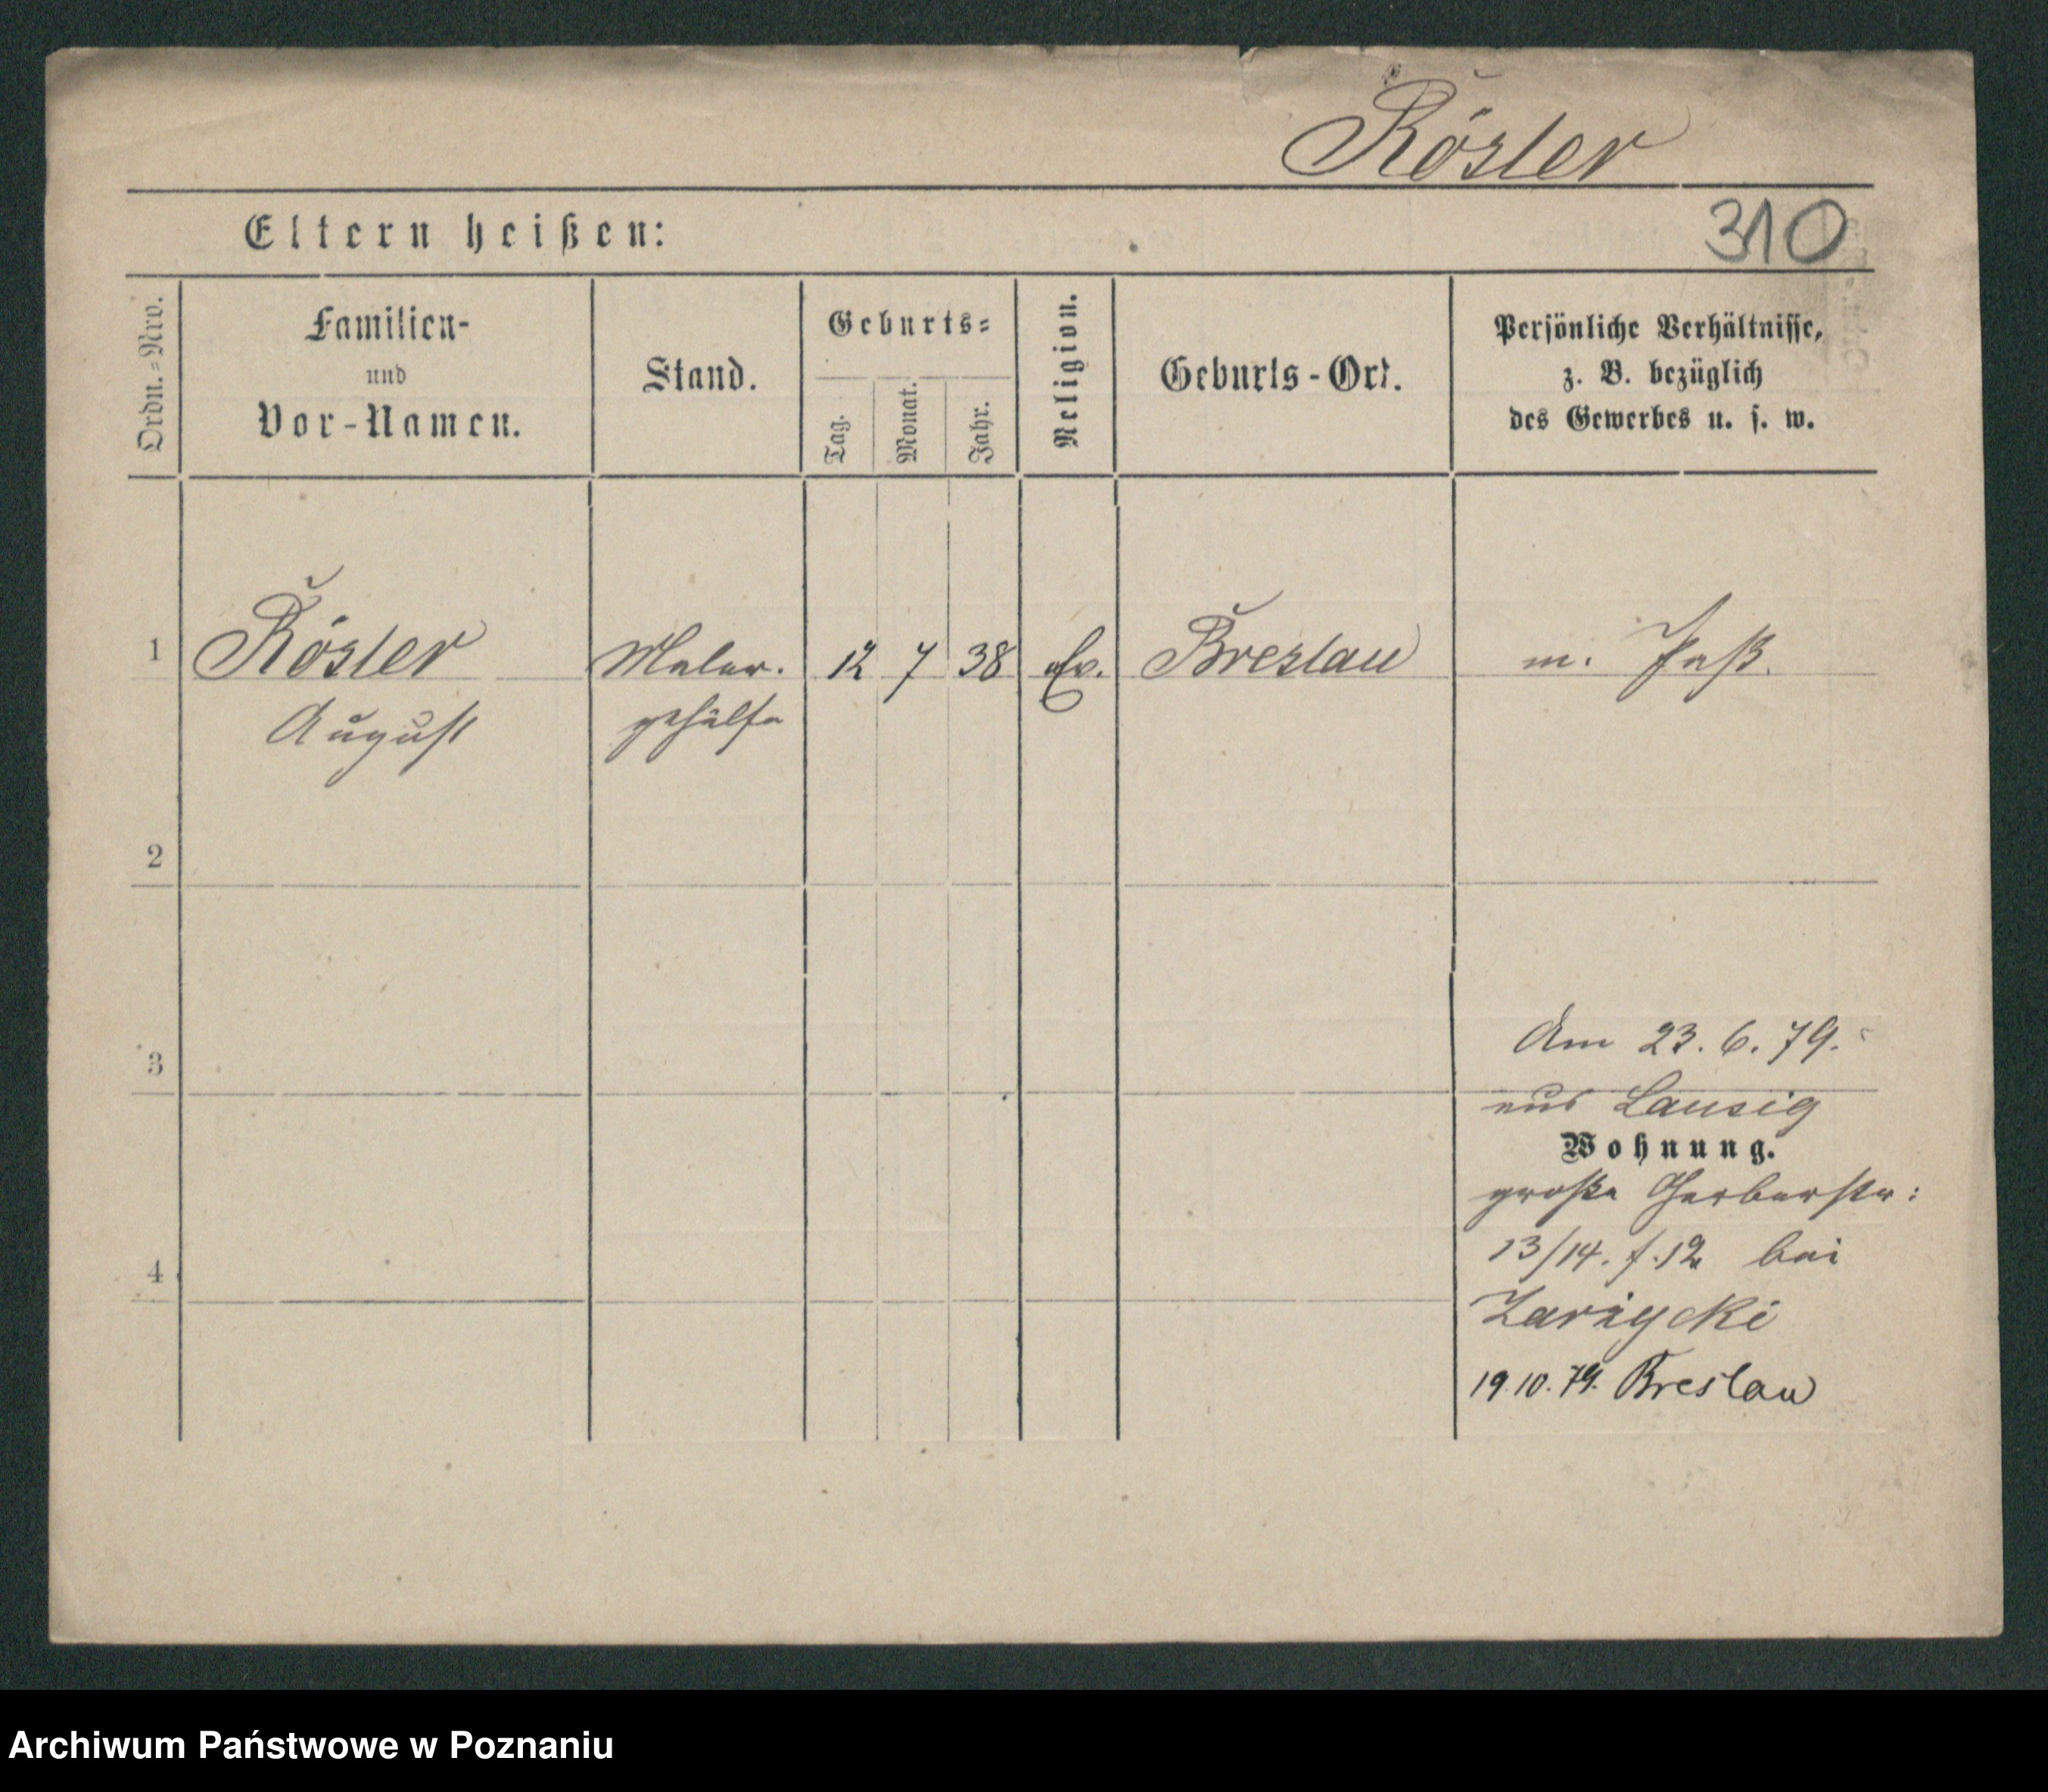 Rösler
310
Eltern heißen:
Ordn.=Nro.
Familien-
und
Vor-Namen.
Stand.
Geburts=
Tag.
Monat.
Jahr.
Religion.
Geburts-Ort.
Persönliche Verhältnisse,
z. B. bezüglich
des Gewerbes u. s. w.
1 Rösler Maler. 12 7 38 Ev. Breslau m. Paß.
August gehülfe
2
3
Am 23. 6. 79.
aus Lausig
Wohnung.
große Gerberstr:
13/14. f. 12 bei
4
Zarzycki
19. 10. 79. Breslau
Archiwum Państwowe w Poznaniu